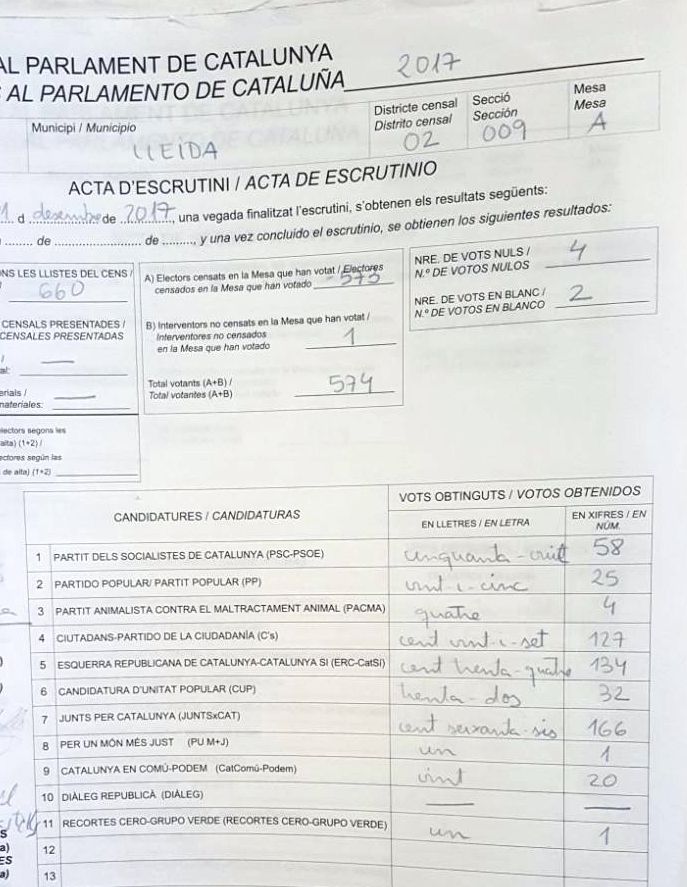 AL PARLAMENT DE CATALUNYA
AL PARLAMENTO DE CATALUÑA 2017
Municipi / Municipio
LLEIDA
Districte censal
Distrito censal
02
Secció
Sección
009
Mesa
Mesa
A
ACTA D'ESCRUTINI / ACTA DE ESCRUTINIO
d desembre de 2017, una vegada finalitzat l'escrutini, s'obtenen els resultats següents:
de de , y una vez concluido el escrutinio, se obtienen los siguientes resultados:
NS LES LLISTES DEL CENS /
660
CENSALS PRESENTADES /
CENSALES PRESENTADAS
al:
erials /
materiales:
lectors segons les
alta) (1+2) /
ectores según las
de alta) (1+2)
A) Electors censats en la Mesa que han votat / Electores
censados en la Mesa que han votado 573
B) Interventors no censats en la Mesa que han votat /
Interventores no censados
en la Mesa que han votado 1
Total votants (A+B) /
Total votantes (A+B) 574
NRE. DE VOTS NULS /
N.º DE VOTOS NULOS 4
NRE. DE VOTS EN BLANC /
N.º DE VOTOS EN BLANCO 2
CANDIDATURES / CANDIDATURAS
VOTS OBTINGUTS / VOTOS OBTENIDOS
EN LLETRES / EN LETRA
EN XIFRES / EN
NÚM.
1 PARTIT DELS SOCIALISTES DE CATALUNYA (PSC-PSOE) cinquanta-vuit 58
2 PARTIDO POPULAR/ PARTIT POPULAR (PP) vint-i-cinc 25
3 PARTIT ANIMALISTA CONTRA EL MALTRACTAMENT ANIMAL (PACMA) quatre 4
4 CIUTADANS-PARTIDO DE LA CIUDADANÍA (C's) cent vint-i-set 127
5 ESQUERRA REPUBLICANA DE CATALUNYA-CATALUNYA SI (ERC-CatSÍ) cent trenta-quatre 134
6 CANDIDATURA D'UNITAT POPULAR (CUP) trenta-dos 32
7 JUNTS PER CATALUNYA (JUNTSxCAT) cent seixanta-sis 166
8 PER UN MÓN MÉS JUST (PU M+J) un 1
9 CATALUNYA EN COMÚ-PODEM (CatComú-Podem) vint 20
10 DIÀLEG REPUBLICÀ (DIÀLEG)
11 RECORTES CERO-GRUPO VERDE (RECORTES CERO-GRUPO VERDE) un 1
12
13
S
a)
ES
a)